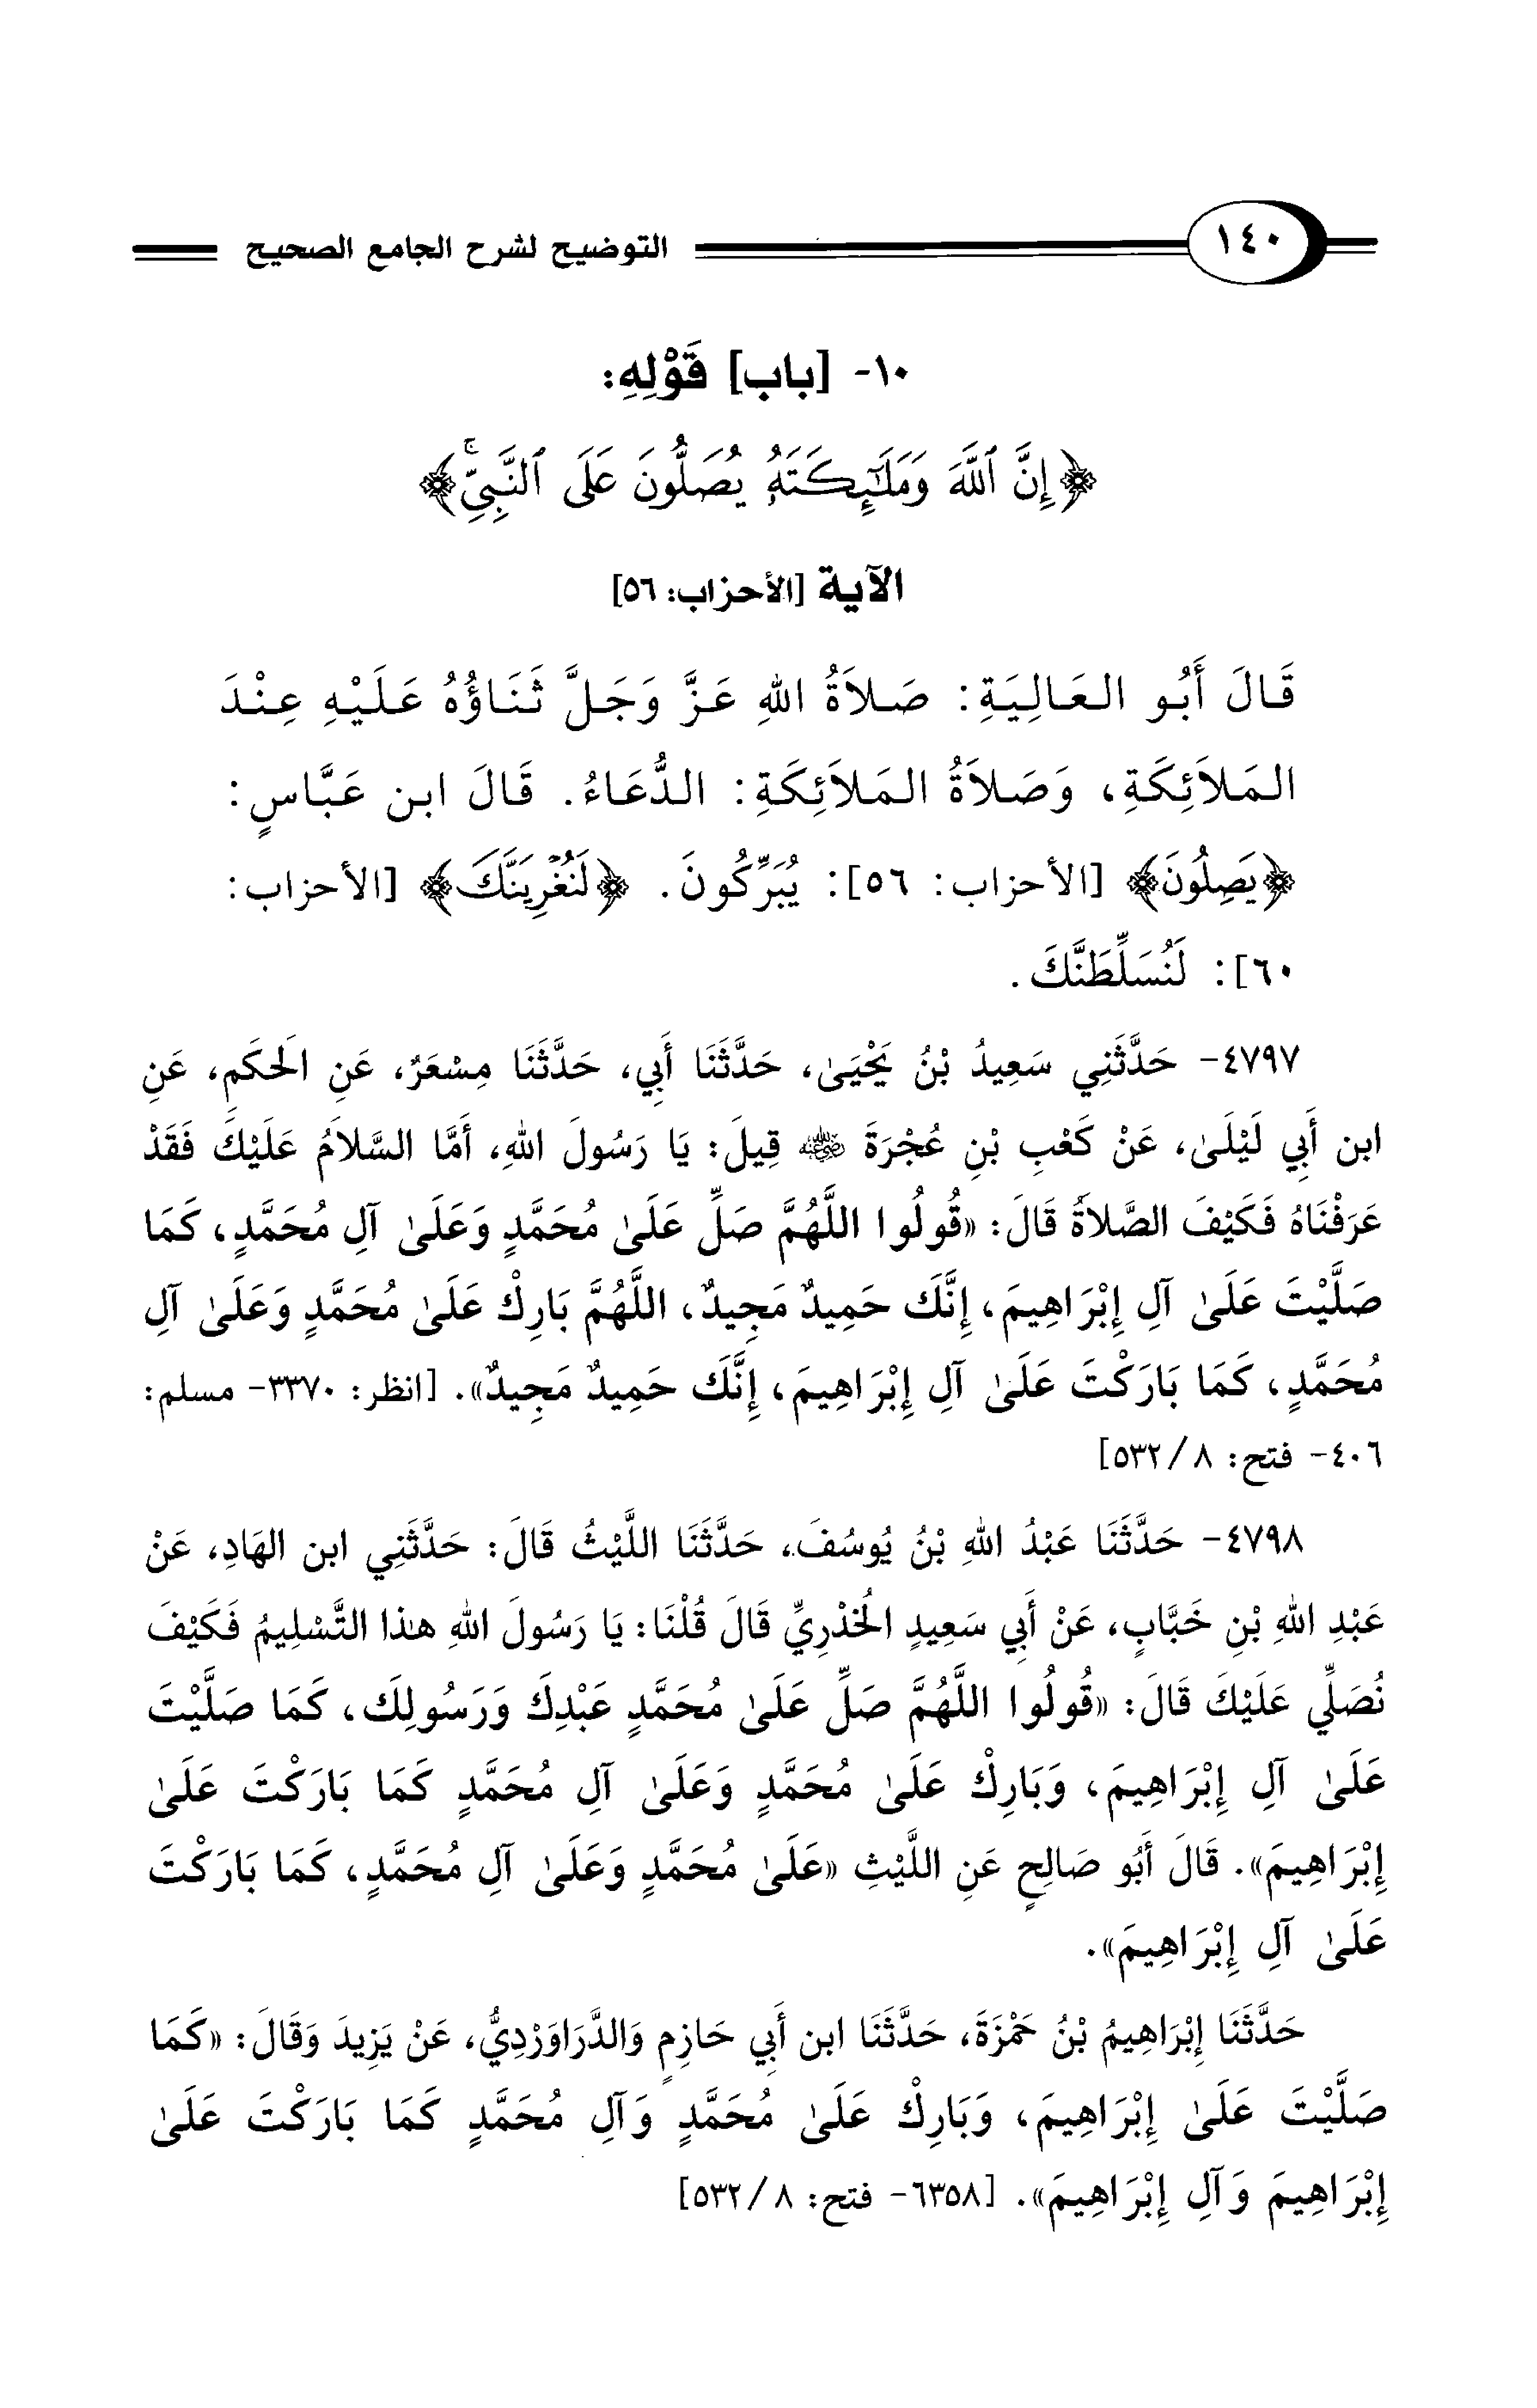 ١٤٠ التوضيح لشرح الجامع الصحيح
١٠- [باب] قَوْلِهِ:
﴿إِنَّ ٱللَّهَ وَمَلَٰٓئِكَتَهُۥ يُصَلُّونَ عَلَى ٱلنَّبِيِّۚ﴾
الآية [الأحزاب: ٥٦]
قَالَ أَبُو العَالِيَةِ: صَلاَةُ اللهِ عَزَّ وَجَلَّ ثَنَاؤُهُ عَلَيْهِ عِنْدَ
المَلاَئِكَةِ، وَصَلاَةُ المَلاَئِكَةِ: الدُّعَاءُ. قَالَ ابن عَبَّاسٍ:
﴿يَصِلُونَ﴾ [الأحزاب: ٥٦]: يُبَرِّكُونَ. ﴿لَنُغْرِيَنَّكَ﴾ [الأحزاب:
٦٠]: لَنُسَلِّطَنَّكَ.
٤٧٩٧- حَدَّثَنِي سَعِيدُ بْنُ يَحْيَىٰ، حَدَّثَنَا أَبِي، حَدَّثَنَا مِسْعَرٌ، عَنِ الَحكَمِ، عَنِ
ابن أَبِي لَيْلَىٰ، عَنْ كَعْبِ بْنِ عُجْرَةَ رضي الله عنه قِيلَ: يَا رَسُولَ اللهِ، أَمَّا السَّلاَمُ عَلَيْكَ فَقَدْ
عَرَفْنَاهُ فَكَيْفَ الصَّلاَةُ قَالَ: «قُولُوا اللَّهُمَّ صَلِّ عَلَىٰ مُحَمَّدٍ وَعَلَىٰ آلِ مُحَمَّدٍ، كَمَا
صَلَّيْتَ عَلَىٰ آلِ إِبْرَاهِيمَ، إِنَّكَ حَمِيدٌ مَجِيدٌ، اللَّهُمَّ بَارِكْ عَلَىٰ مُحَمَّدٍ وَعَلَىٰ آلِ
مُحَمَّدٍ، كَمَا بَارَكْتَ عَلَىٰ آلِ إِبْرَاهِيمَ، إِنَّكَ حَمِيدٌ مَجِيدٌ». [انظر: ٣٣٧٠- مسلم:
٤٠٦- فتح: ٨/ ٥٣٢]
٤٧٩٨- حَدَّثَنَا عَبْدُ اللهِ بْنُ يُوسُفَ، حَدَّثَنَا اللَّيْثُ قَالَ: حَدَّثَنِي ابن الهَادِ، عَنْ
عَبْدِ اللهِ بْنِ خَبَّابٍ، عَنْ أَبِي سَعِيدٍ الُخدْرِيِّ قَالَ قُلْنَا: يَا رَسُولَ اللهِ هذا التَّسْلِيمُ فَكَيْفَ
نُصَلِّي عَلَيْكَ قَالَ: «قُولُوا اللَّهُمَّ صَلِّ عَلَىٰ مُحَمَّدٍ عَبْدِكَ وَرَسُولِكَ، كَمَا صَلَّيْتَ
عَلَىٰ آلِ إِبْرَاهِيمَ، وَبَارِكْ عَلَىٰ مُحَمَّدٍ وَعَلَىٰ آلِ مُحَمَّدٍ كَمَا بَارَكْتَ عَلَىٰ
إِبْرَاهِيمَ». قَالَ أَبُو صَالِحٍ عَنِ اللَّيْثِ «عَلَىٰ مُحَمَّدٍ وَعَلَىٰ آلِ مُحَمَّدٍ، كَمَا بَارَكْتَ
عَلَىٰ آلِ إِبْرَاهِيمَ».
حَدَّثَنَا إِبْرَاهِيمُ بْنُ حَمْزَةَ، حَدَّثَنَا ابن أَبِي حَازِمٍ وَالدَّرَاوَرْدِيُّ، عَنْ يَزِيدَ وَقَالَ: «كَمَا
صَلَّيْتَ عَلَىٰ إِبْرَاهِيمَ، وَبَارِكْ عَلَىٰ مُحَمَّدٍ وَآلِ مُحَمَّدٍ كَمَا بَارَكْتَ عَلَىٰ
إِبْرَاهِيمَ وَآلِ إِبْرَاهِيمَ». [٦٣٥٨- فتح: ٨/ ٥٣٢]